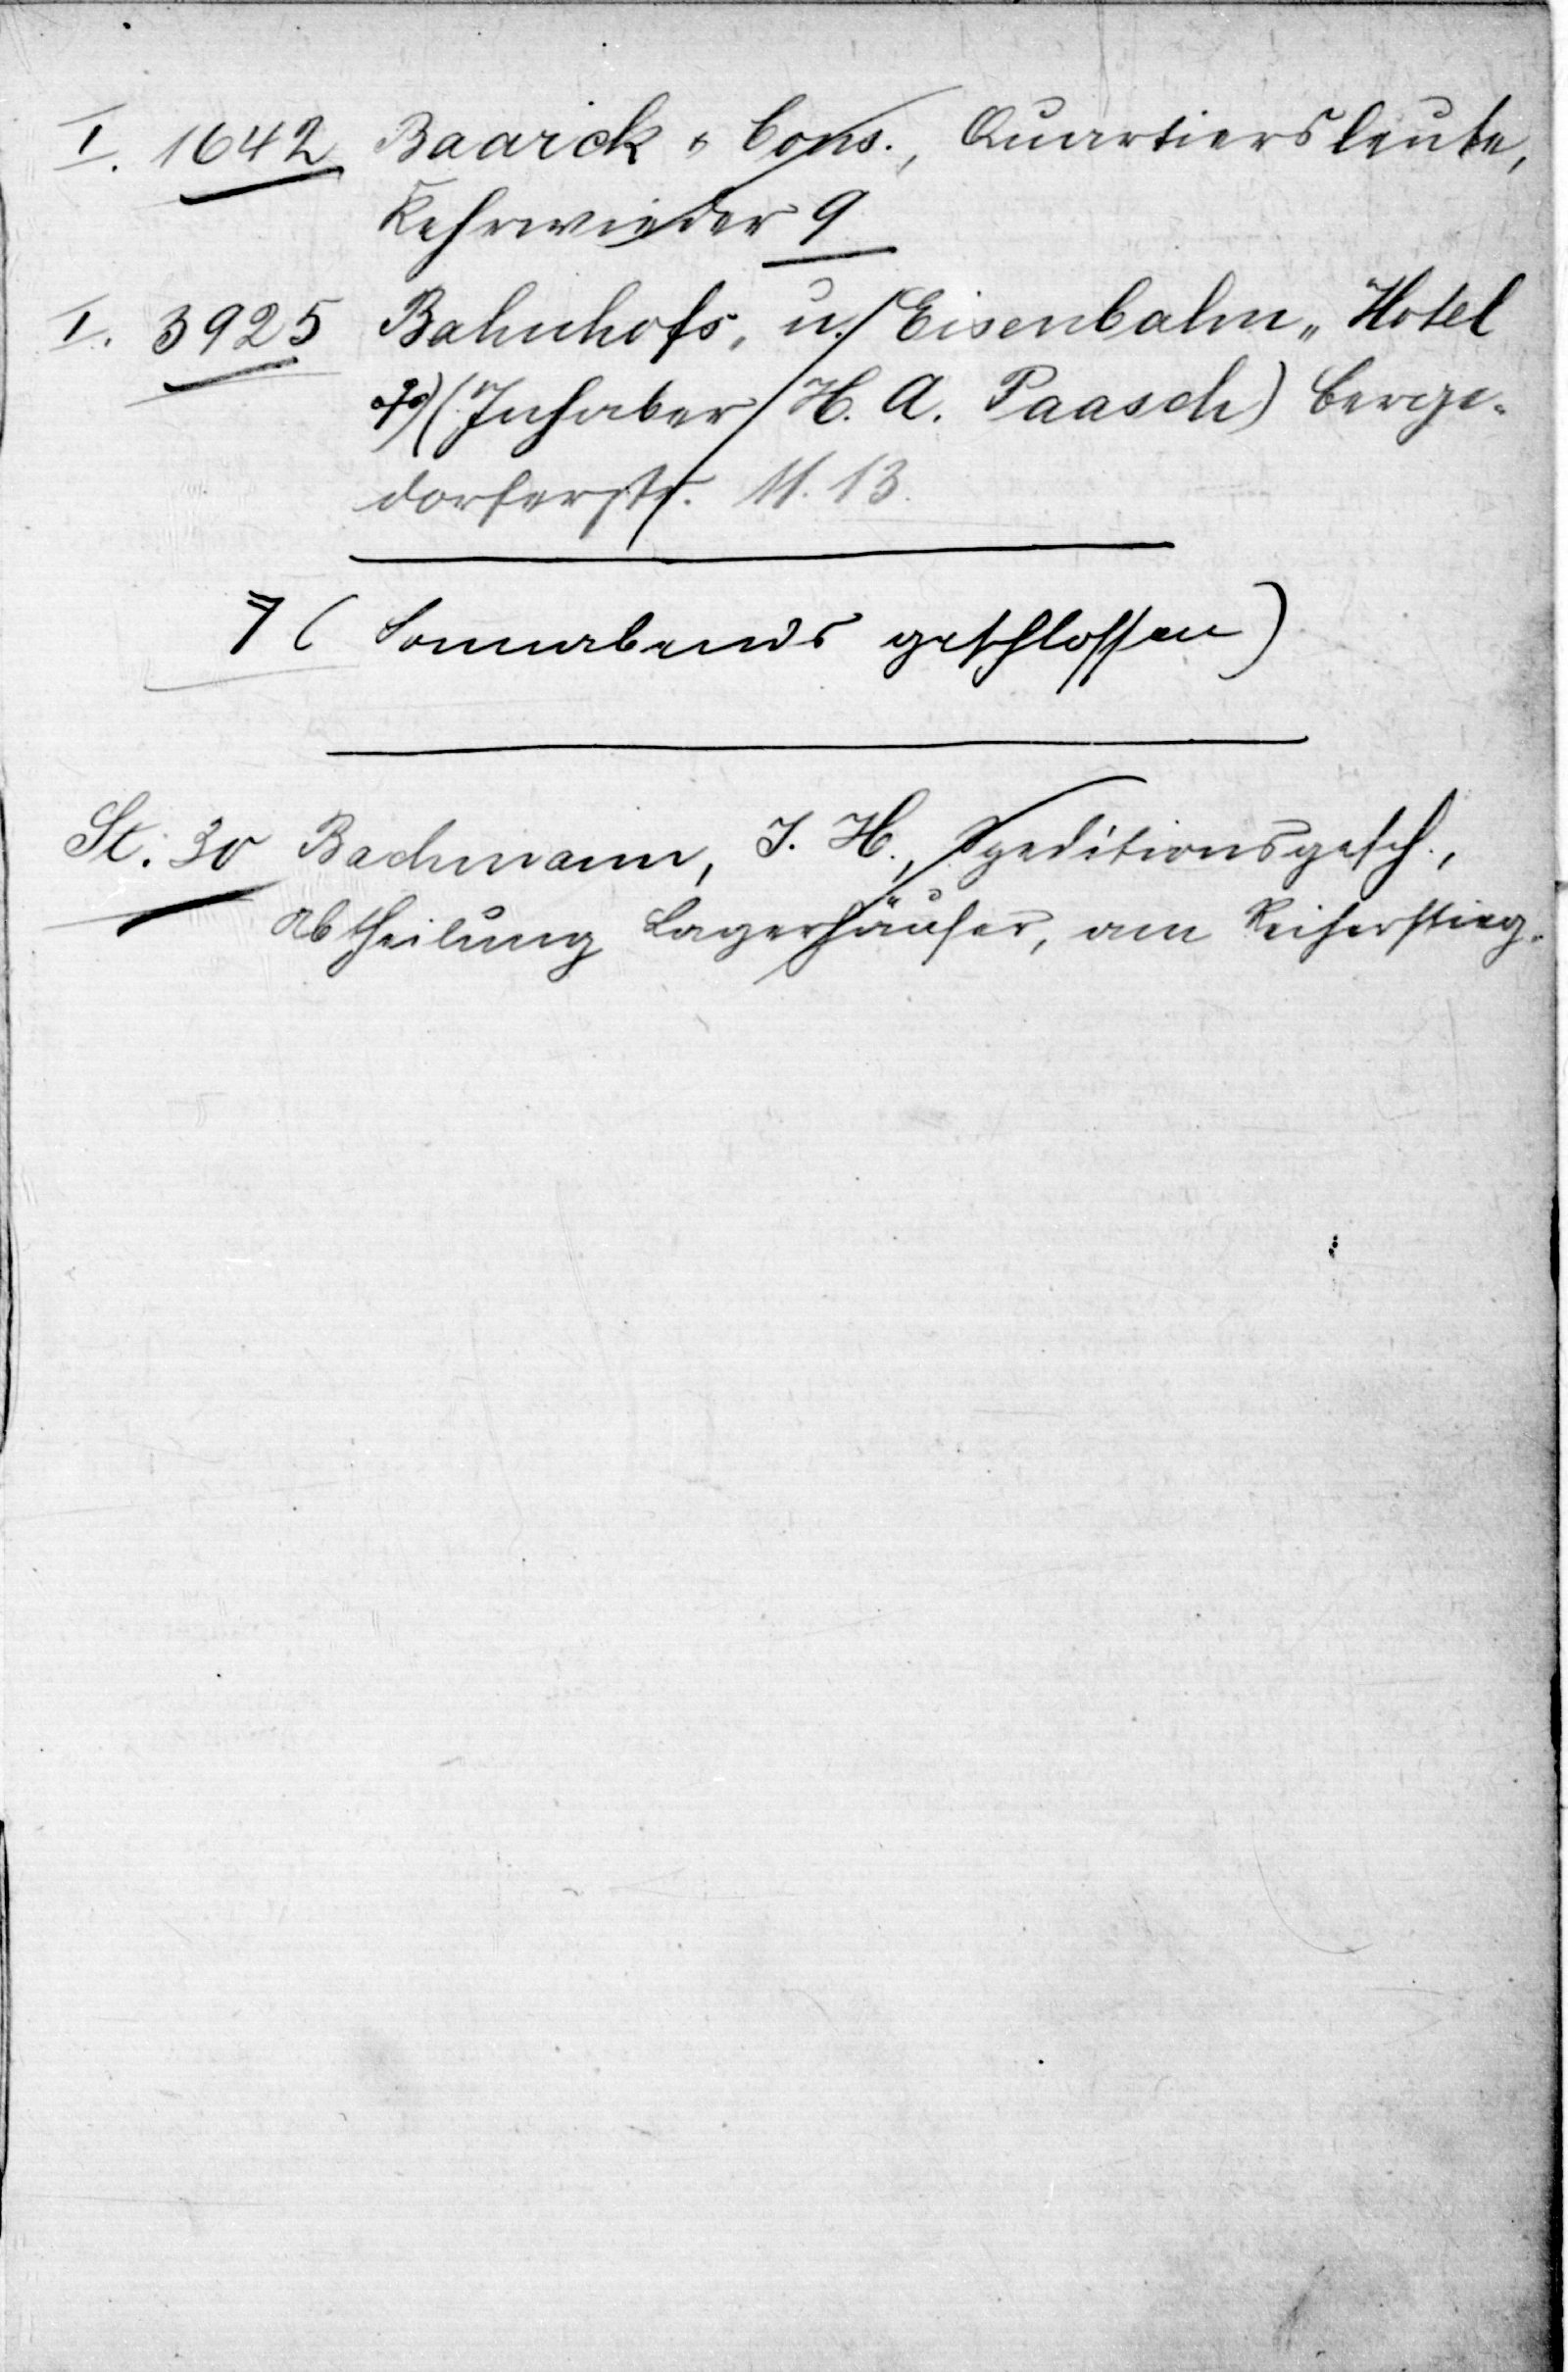 I. 1642 Baarck & Cons., Quartiersleute,
Kehrwieder 9
I. 3925 Bahnhofs- u. Eisenbahn-Hotel
(Inhaber H. A. Paasch) Berge-
dorferstr. 11. 13.
7 (Sonnabends geschlossen)
St. 30 Bachmann, J. H., Speditionsgesch.,
Abtheilung Lagerhäuser, am Reiherstieg.